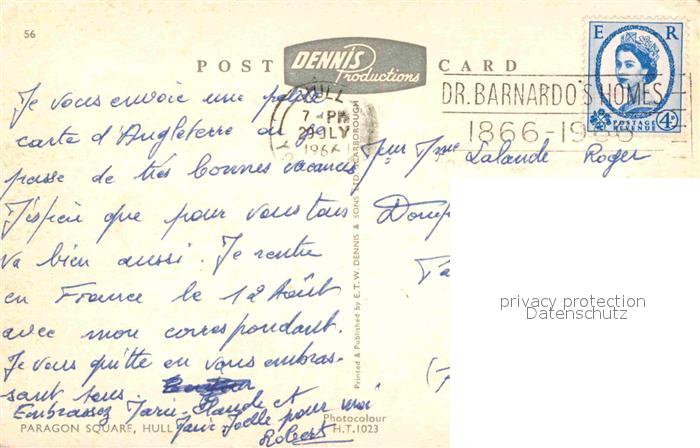 56
POST CARD
DENNIS
Productions
HULL
7 - PM
29 JLY
1966
DR. BARNARDO'S HOMES
1866-1966
E R
POSTAGE
REVENUE
4D
Je vous envoie une petite
carte d'Angleterre où je
passe de très bonnes vacances
J'espère que pour vous tous
va bien aussi. Je rentre
en France le 12 Août
avec mon correspondant.
Je vous quitte en vous embras-
sant tous.
Embrassez Marie-Claude et
Marie Joelle pour moi
Robert
Lalande Roger
Printed & Published by E. T. W. DENNIS & SONS LTD SCARBOROUGH
privacy protection
Datenschutz
PARAGON SQUARE, HULL
Photocolour
H.T.1023